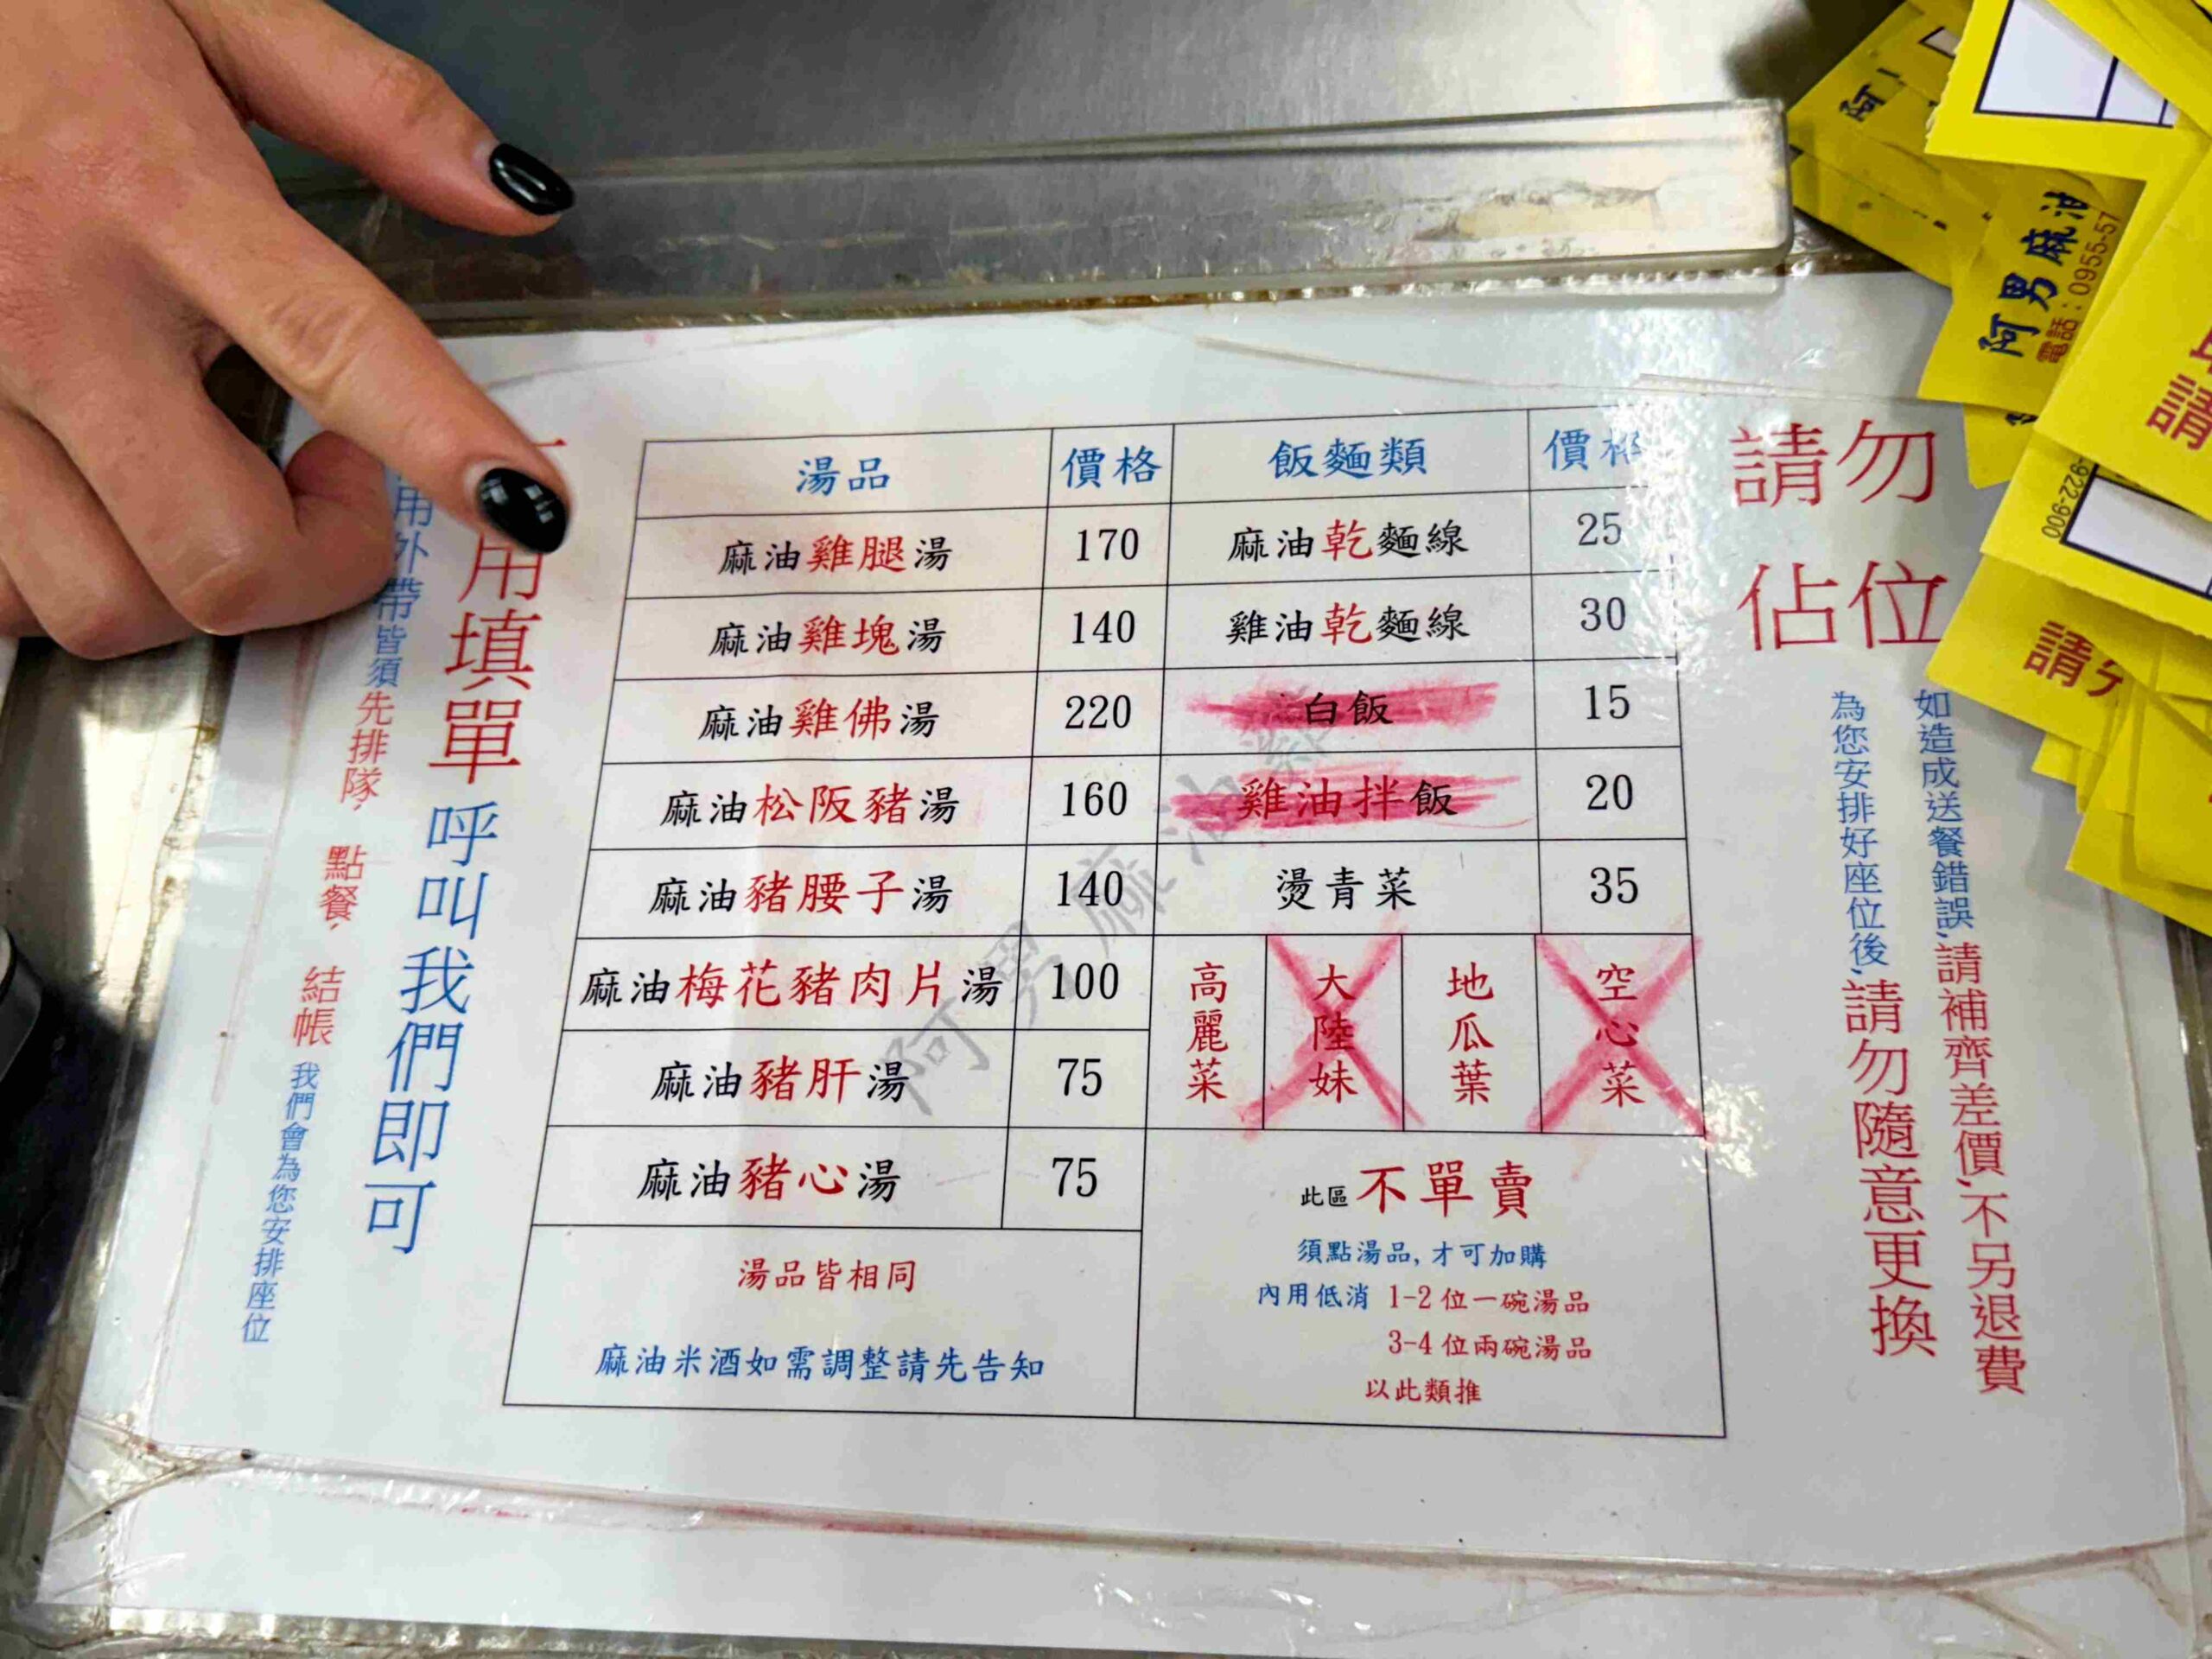 用外帶皆須先排隊, 點餐, 結帳 我們會為您安排座位
用填單 呼叫我們即可
湯品 價格 飯麵類 價格
麻油雞腿湯 170 麻油乾麵線 25
麻油雞塊湯 140 雞油乾麵線 30
麻油雞佛湯 220 白飯 15
麻油松阪豬湯 160 雞油拌飯 20
麻油豬腰子湯 140 燙青菜 35
麻油梅花豬肉片湯 100 高麗菜 大陸妹 地瓜葉 空心菜
麻油豬肝湯 75
麻油豬心湯 75
湯品皆相同
麻油米酒如需調整請先告知
此區不單賣
須點湯品, 才可加購
內用低消 1-2 位一碗湯品
3-4 位兩碗湯品
以此類推
阿男麻油
請勿
佔位
為您安排好座位後, 請勿隨意更換
如造成送餐錯誤, 請補齊差價, 不另退費
阿男麻油
電話:0955-57
-922-900
請